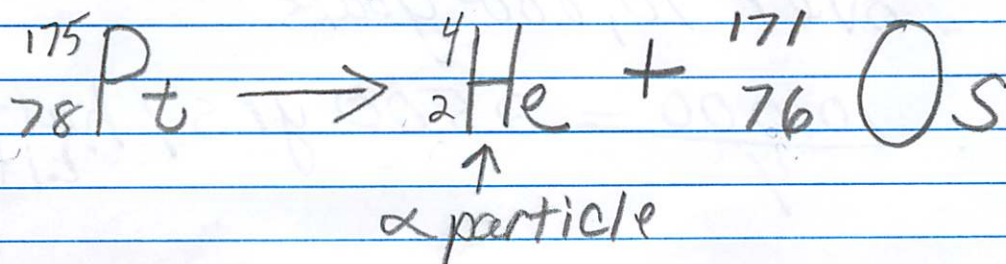 ¹⁷⁵₇₈Pt → ⁴₂He + ¹⁷¹₇₆Os
↑
α particle